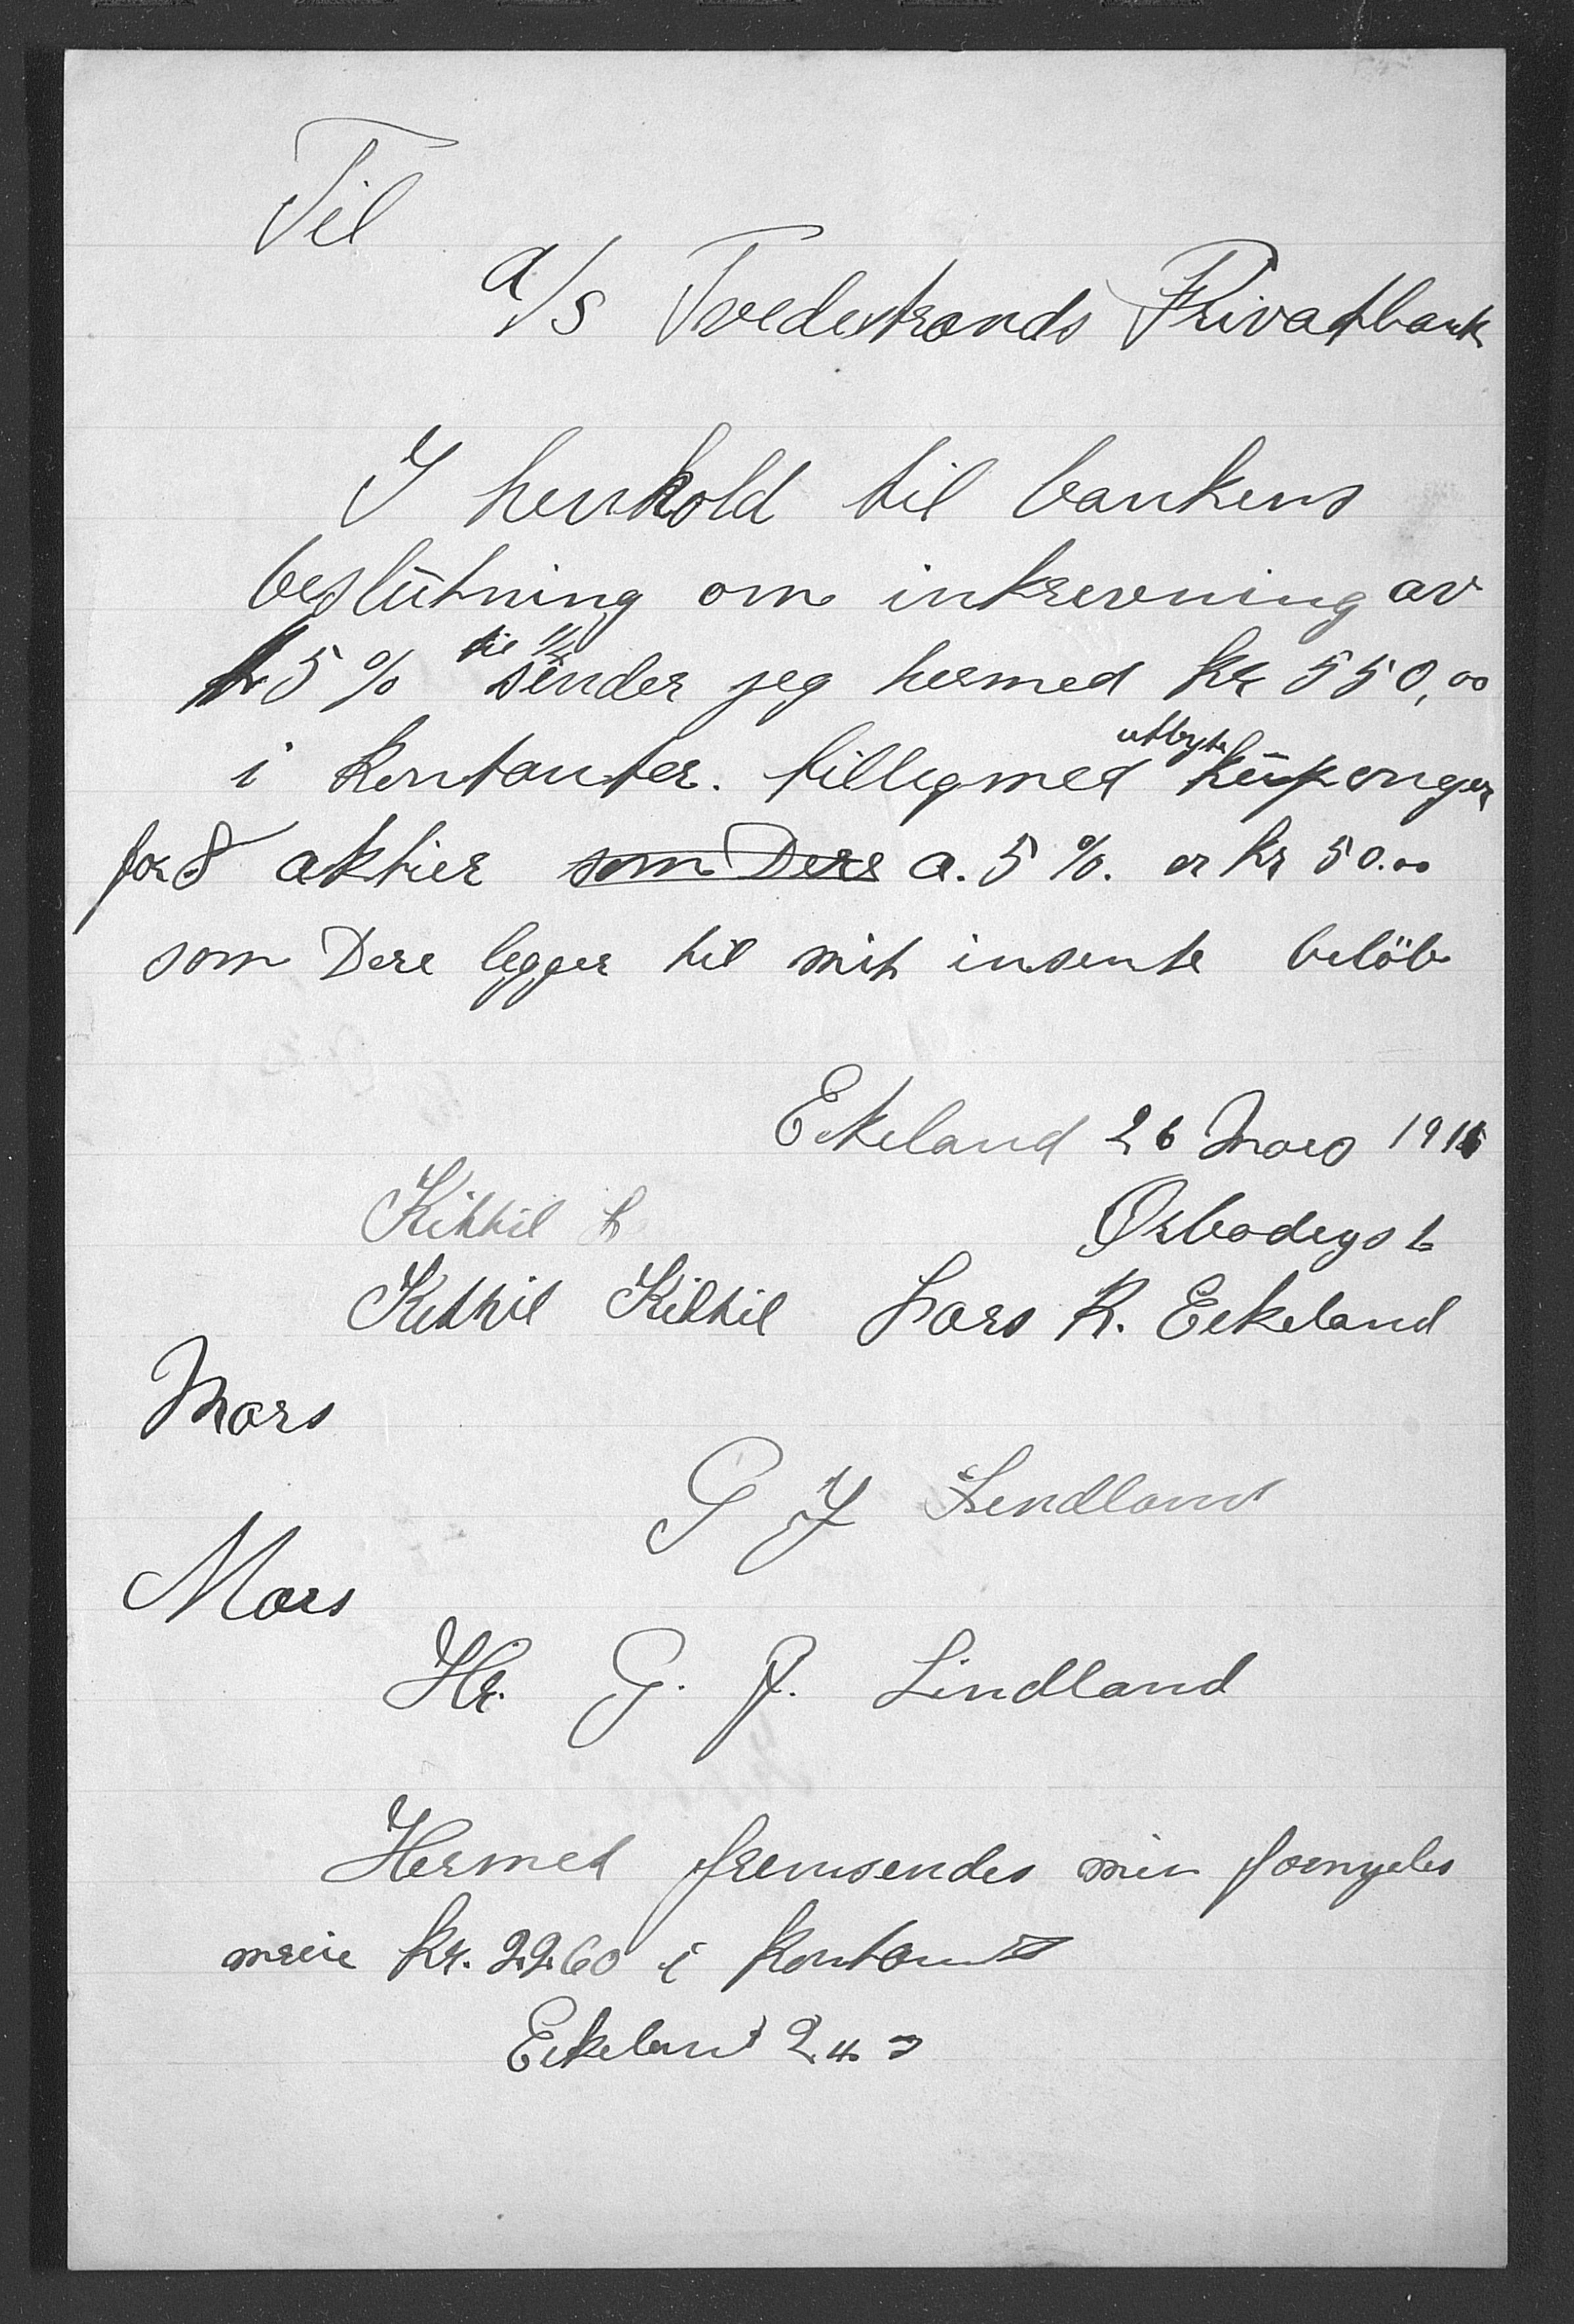 Til
a/s Tvedestrands Privatbank
I henhold til bankens
beslutning om inkrevning av
25% til 1/4 sender jeg hermed kr 550,00
i kontanter. tilligmed utbyte kuponger
for 8 aktier som Dere a. 5%. er kr 50.00
som Dere legger til mit insente beløb
Ekeland 26 Mars 1915
Kittil
Østerbødegst
Kittil Kittil Lars R. Eekeland
Mars
G J Lendland
Mars
Hr. G. J. Lindland
Hermed fremsendes min
kr. 2260 i kontant
Eekeland 24